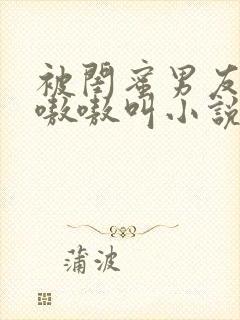 被閏蜜男友
嗷嗷叫小説
蒲波